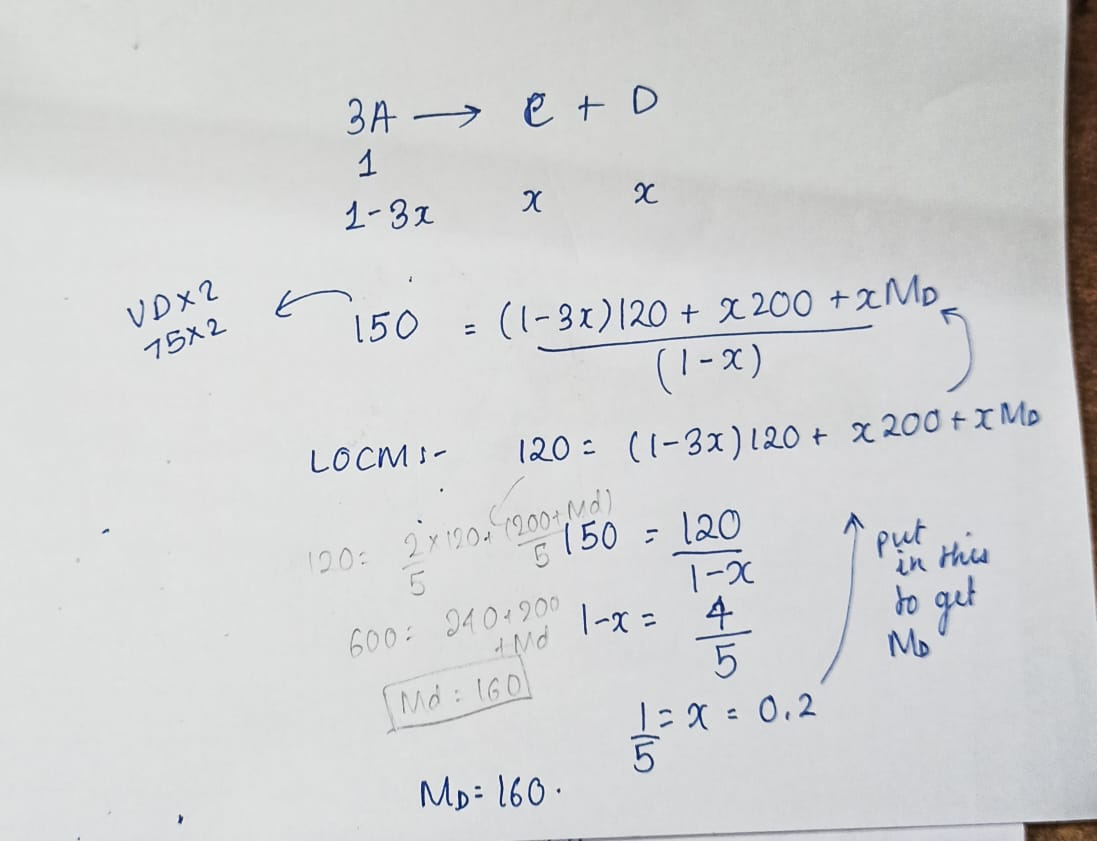 3A → C + D
1
1-3x x x
VD×2
75×2
150 = (1-3x)120 + x200 + xMD
(1-x)
LOCM:- 120 = (1-3x)120 + x200 + xMD
120 = 2/5 × 120 + (200+Md)/5
150 = 120/1-x
600 = 240+200
+Md
1-x = 4/5
put
in this
to get
MD
Md = 160
1/5 = x = 0.2
MD = 160.